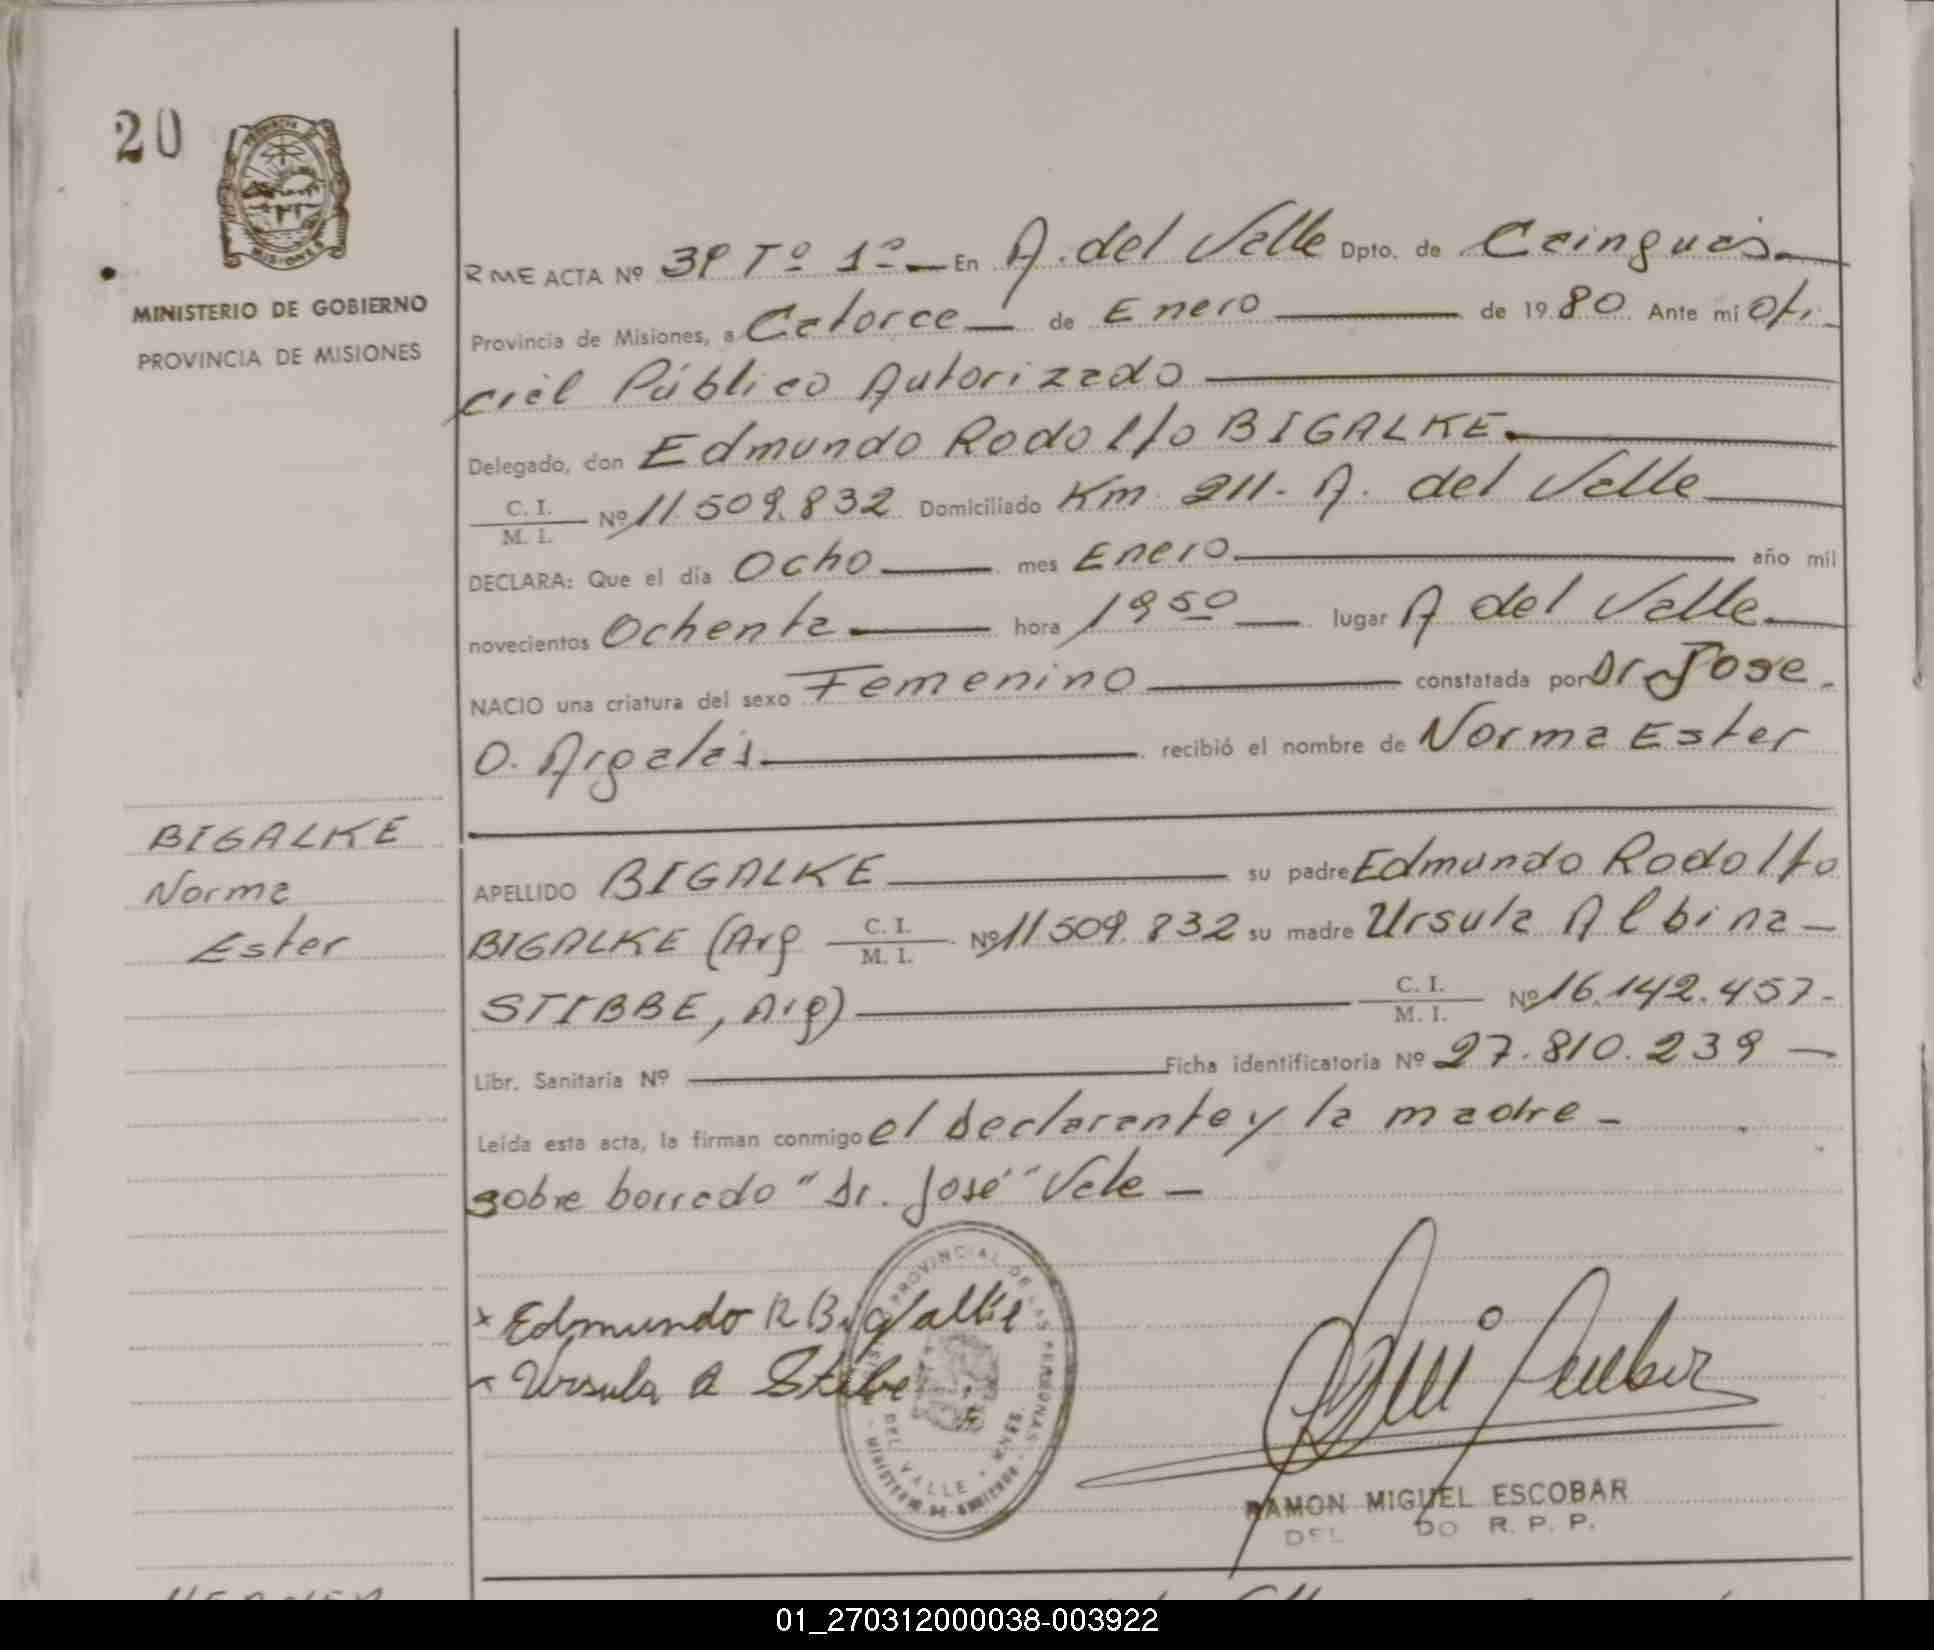 20
MINISTERIO DE GOBIERNO
PROVINCIA DE MISIONES
RME ACTA Nº 39 Tº 1º — En A. del Valle Dpto. de Cainguás.—
Provincia de Misiones, a Catorce — de Enero — de 1980. Ante mi Ofi-
cial Público Autorizado —
Delegado, don Edmundo Rodolfo BIGALKE.—
C. I. / M. I. Nº 11.509.832 Domiciliado Km. 211. A. del Valle —
DECLARA: Que el día Ocho — mes Enero — año mil
novecientos Ochenta — hora 19 50 — lugar A del Valle —
NACIO una criatura del sexo Femenino — constatada por Dr. Jose -
O. Argalás. — recibió el nombre de Norma Ester
BIGALKE
Norma
Ester
APELLIDO BIGALKE — su padre Edmundo Rodolfo
BIGALKE (Arg C. I. / M. I. Nº 11.509.832 su madre Ursula Albina —
STIBBE, Arg) — C. I. / M. I. Nº 16.142.457-
Libr. Sanitaria Nº — Ficha identificatoria Nº 27.810.239 —
Leída esta acta, la firman conmigo el declarante y la madre —
sobre borrado "Dr. José" Vale —
x Edmundo R Bigalke
Ursula A Stibe
PROVINCIAL DE LAS PERSONAS
DEL VALLE - MNES.
RAMON MIGUEL ESCOBAR
DEL DO R. P. P.
01_270312000038-003922